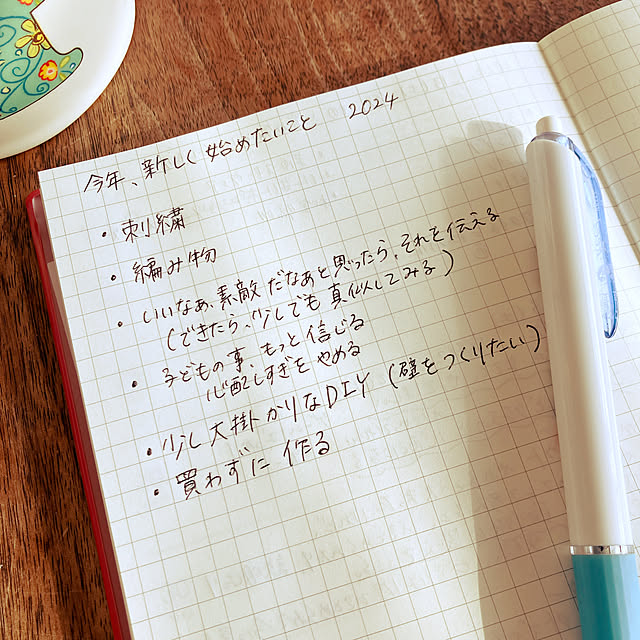 今年、新しく始めたいこと 2024
・刺繍
・編み物
・いいなぁ、素敵だなあと思ったら、それを伝える
(できたら、少しでも真似してみる)
・子どもの事、もっと信じる
心配しすぎをやめる
・少し大掛かりなDIY(壁をつくりたい)
・買わずに作る